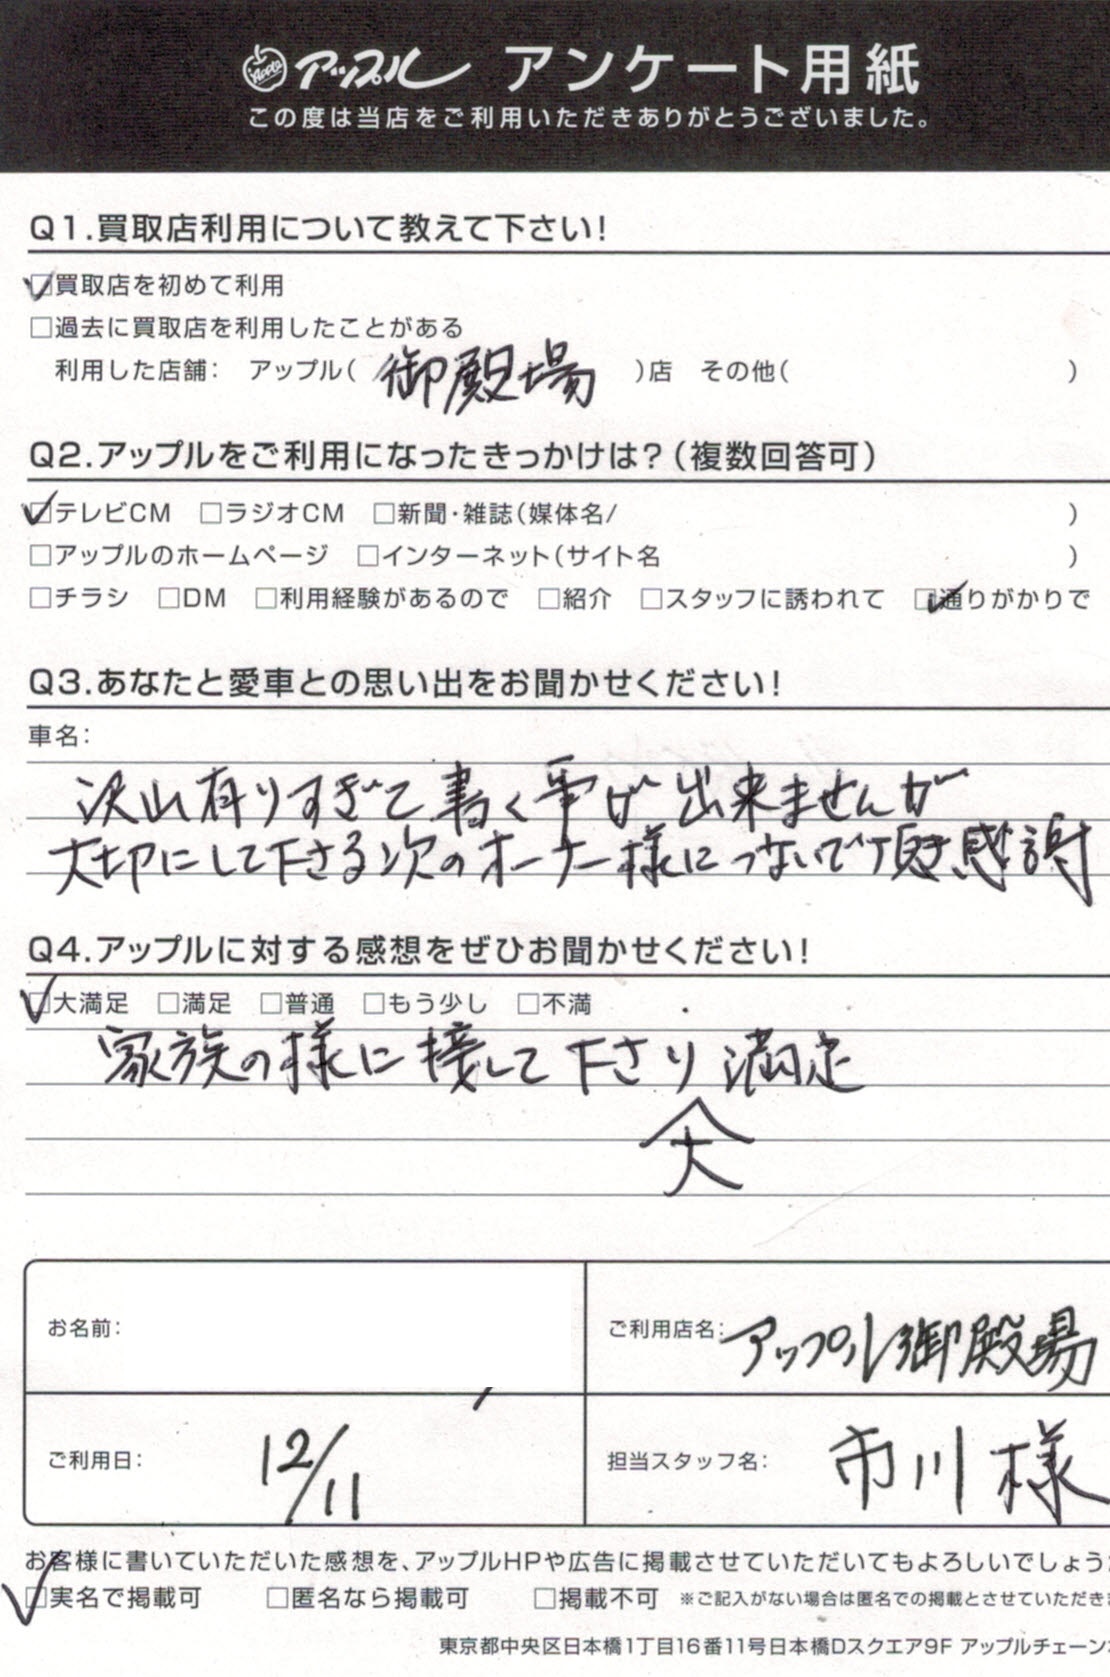 Apple アップル アンケート用紙
この度は当店をご利用いただきありがとうございました。
Q1.買取店利用について教えて下さい!
☑買取店を初めて利用
□過去に買取店を利用したことがある
利用した店舗: アップル( 御殿場 )店 その他( )
Q2.アップルをご利用になったきっかけは?(複数回答可)
☑テレビCM □ラジオCM □新聞・雑誌(媒体名/ )
□アップルのホームページ □インターネット(サイト名 )
□チラシ □DM □利用経験があるので □紹介 □スタッフに誘われて ☑通りがかりで
Q3.あなたと愛車との思い出をお聞かせください!
車名:
沢山有りすぎて書く事が出来ませんが
大切にして下さる次のオーナー様につないで頂き感謝
Q4.アップルに対する感想をぜひお聞かせください!
☑大満足 □満足 □普通 □もう少し □不満
家族の様に接して下さり満足
大
お名前:
ご利用店名: アップル御殿場
ご利用日: 12/11
担当スタッフ名: 市川様
お客様に書いていただいた感想を、アップルHPや広告に掲載させていただいてもよろしいでしょう
☑実名で掲載可 □匿名なら掲載可 □掲載不可 ※ご記入がない場合は匿名での掲載とさせていただき
東京都中央区日本橋1丁目16番11号日本橋Dスクエア9F アップルチェーン